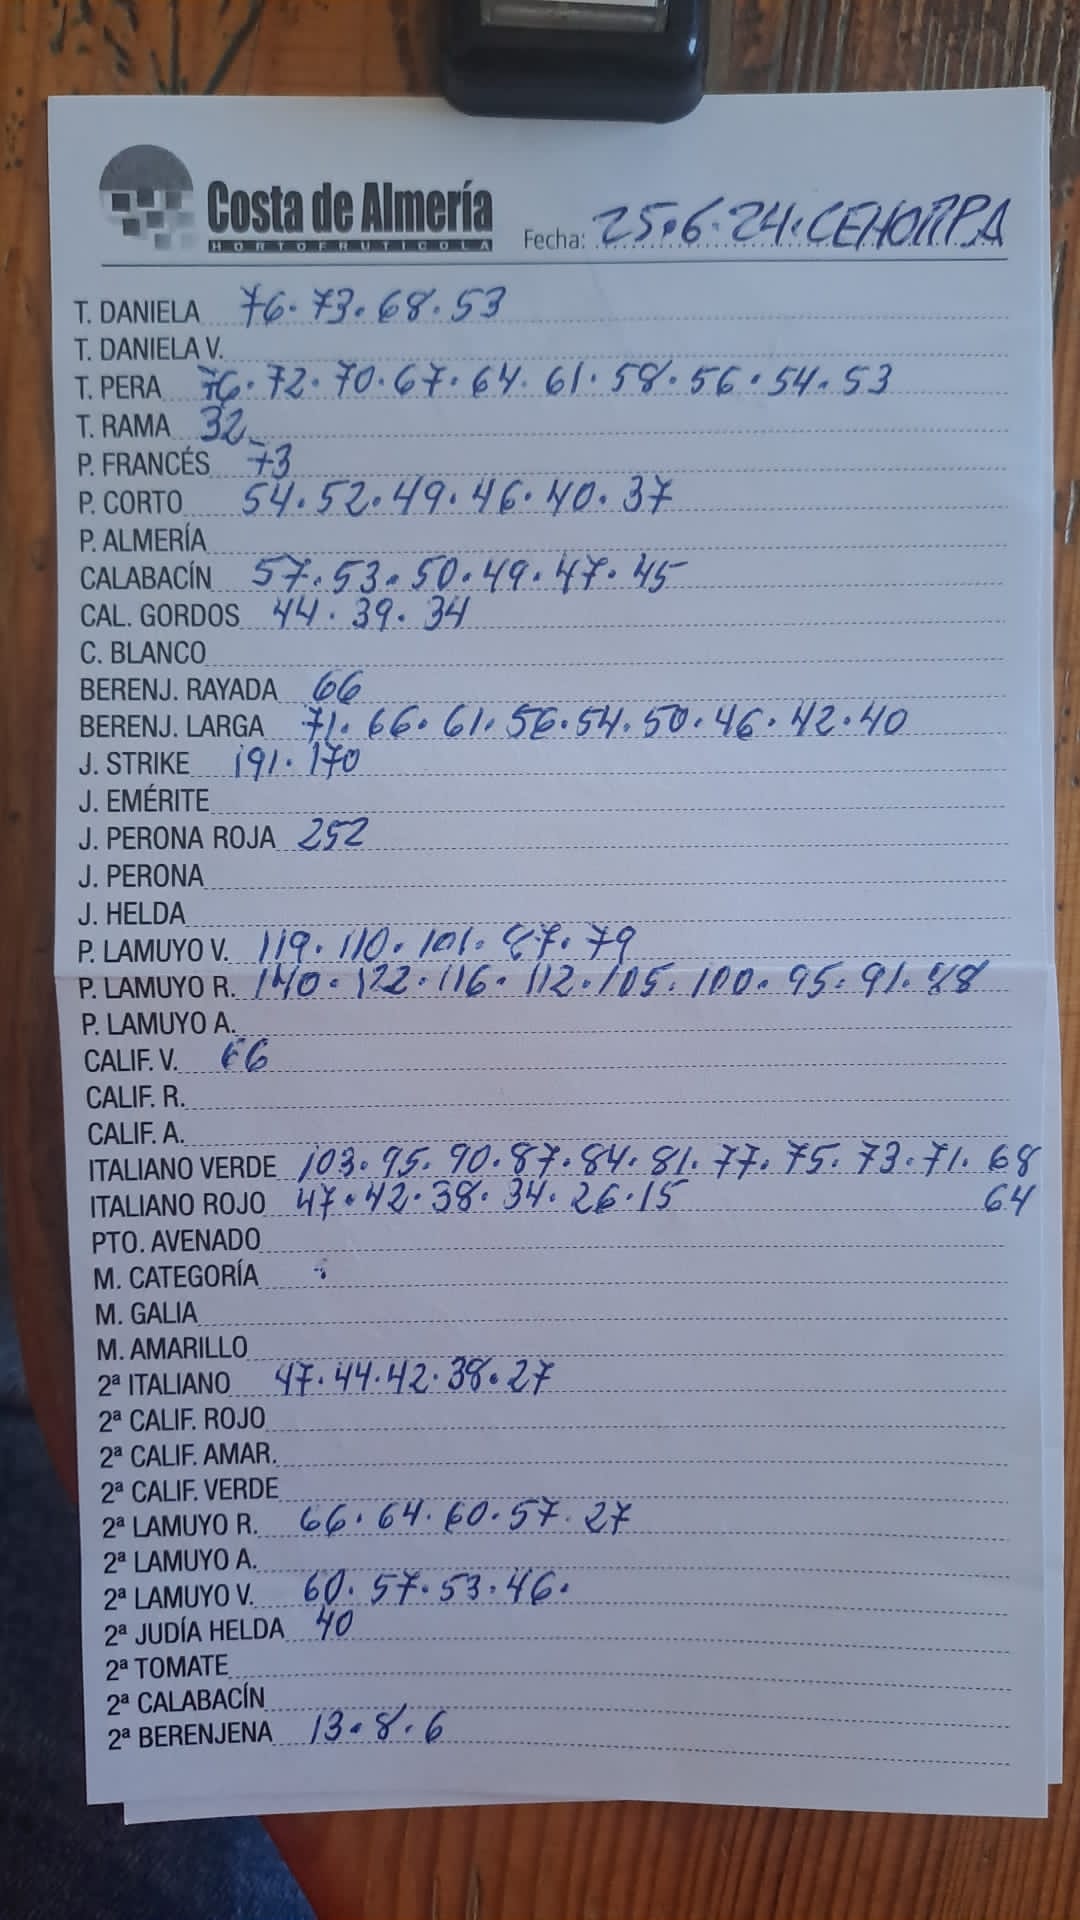 Costa de Almería
HORTOFRUTICOLA
Fecha: 25.6.24.CEHORPA
T. DANIELA 76.73.68.53
T. DANIELA V.
T. PERA 76.72.70.67.64.61.58.56.54.53
T. RAMA 32
P. FRANCÉS 73
P. CORTO 54.52.49.46.40.37
P. ALMERÍA
CALABACÍN 57.53.50.49.47.45
CAL. GORDOS 44.39.34
C. BLANCO
BERENJ. RAYADA 66
BERENJ. LARGA 71.66.61.56.54.50.46.42.40
J. STRIKE 191.170
J. EMÉRITE
J. PERONA ROJA 252
J. PERONA
J. HELDA
P. LAMUYO V. 119.110.101.87.79
P. LAMUYO R. 140.122.116.112.105.100.95.91.88
P. LAMUYO A.
CALIF. V. 66
CALIF. R.
CALIF. A.
ITALIANO VERDE 103.95.90.87.84.81.77.75.73.71.68
ITALIANO ROJO 47.42.38.34.26.15 64
PTO. AVENADO
M. CATEGORÍA
M. GALIA
M. AMARILLO
2ª ITALIANO 47.44.42.38.27
2ª CALIF. ROJO
2ª CALIF. AMAR.
2ª CALIF. VERDE
2ª LAMUYO R. 66.64.60.57.27
2ª LAMUYO A.
2ª LAMUYO V. 60.57.53.46.
2ª JUDÍA HELDA 40
2ª TOMATE
2ª CALABACÍN
2ª BERENJENA 13.8.6